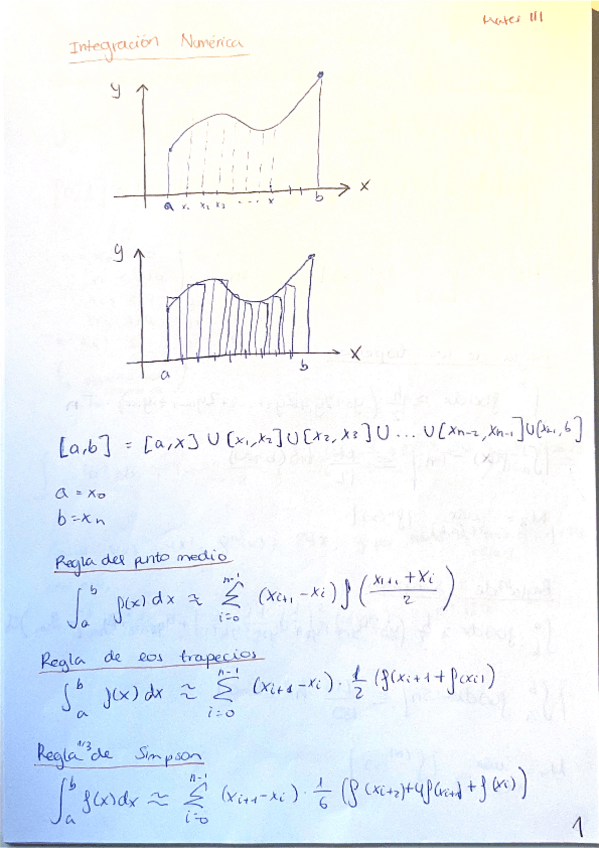 Mates III
Integración Numérica
y
a x₁ x₂ x₃ ... x b
x
y
a b
x
[a,b] = [a,x] ∪ [x₁,x₂] ∪ [x₂,x₃] ∪ ... ∪ [xn-2,xn-1] ∪ [xn-1,b]
a = x₀
b = xn
Regla del punto medio
∫ₐᵇ f(x) dx ≈ Σᵢ₌₀ⁿ⁻¹ (xi+1 - xi) f((xi+1 + xi)/2)
Regla de los trapecios
∫ₐᵇ f(x) dx ≈ Σᵢ₌₀ⁿ⁻¹ (xi+1 - xi) · 1/2 (f(xi+1 + f(xi))
Regla 1/3 de Simpson
∫ₐᵇ f(x) dx ≈ Σᵢ₌₀ⁿ⁻¹ (xi+1 - xi) · 1/6 (f(xi+2) + 4f(xi+1) + f(xi))
1